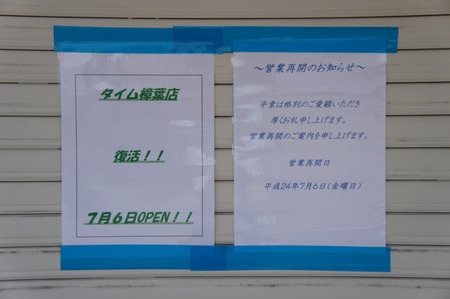 タイム樟葉店
復活！！
７月６日OPEN！！
～営業再開のお知らせ～
平素は格別のご愛顧いただき
厚くお礼申し上げます。
営業再開のご案内を申し上げます。
営業再開日
平成24年7月6日(金曜日)